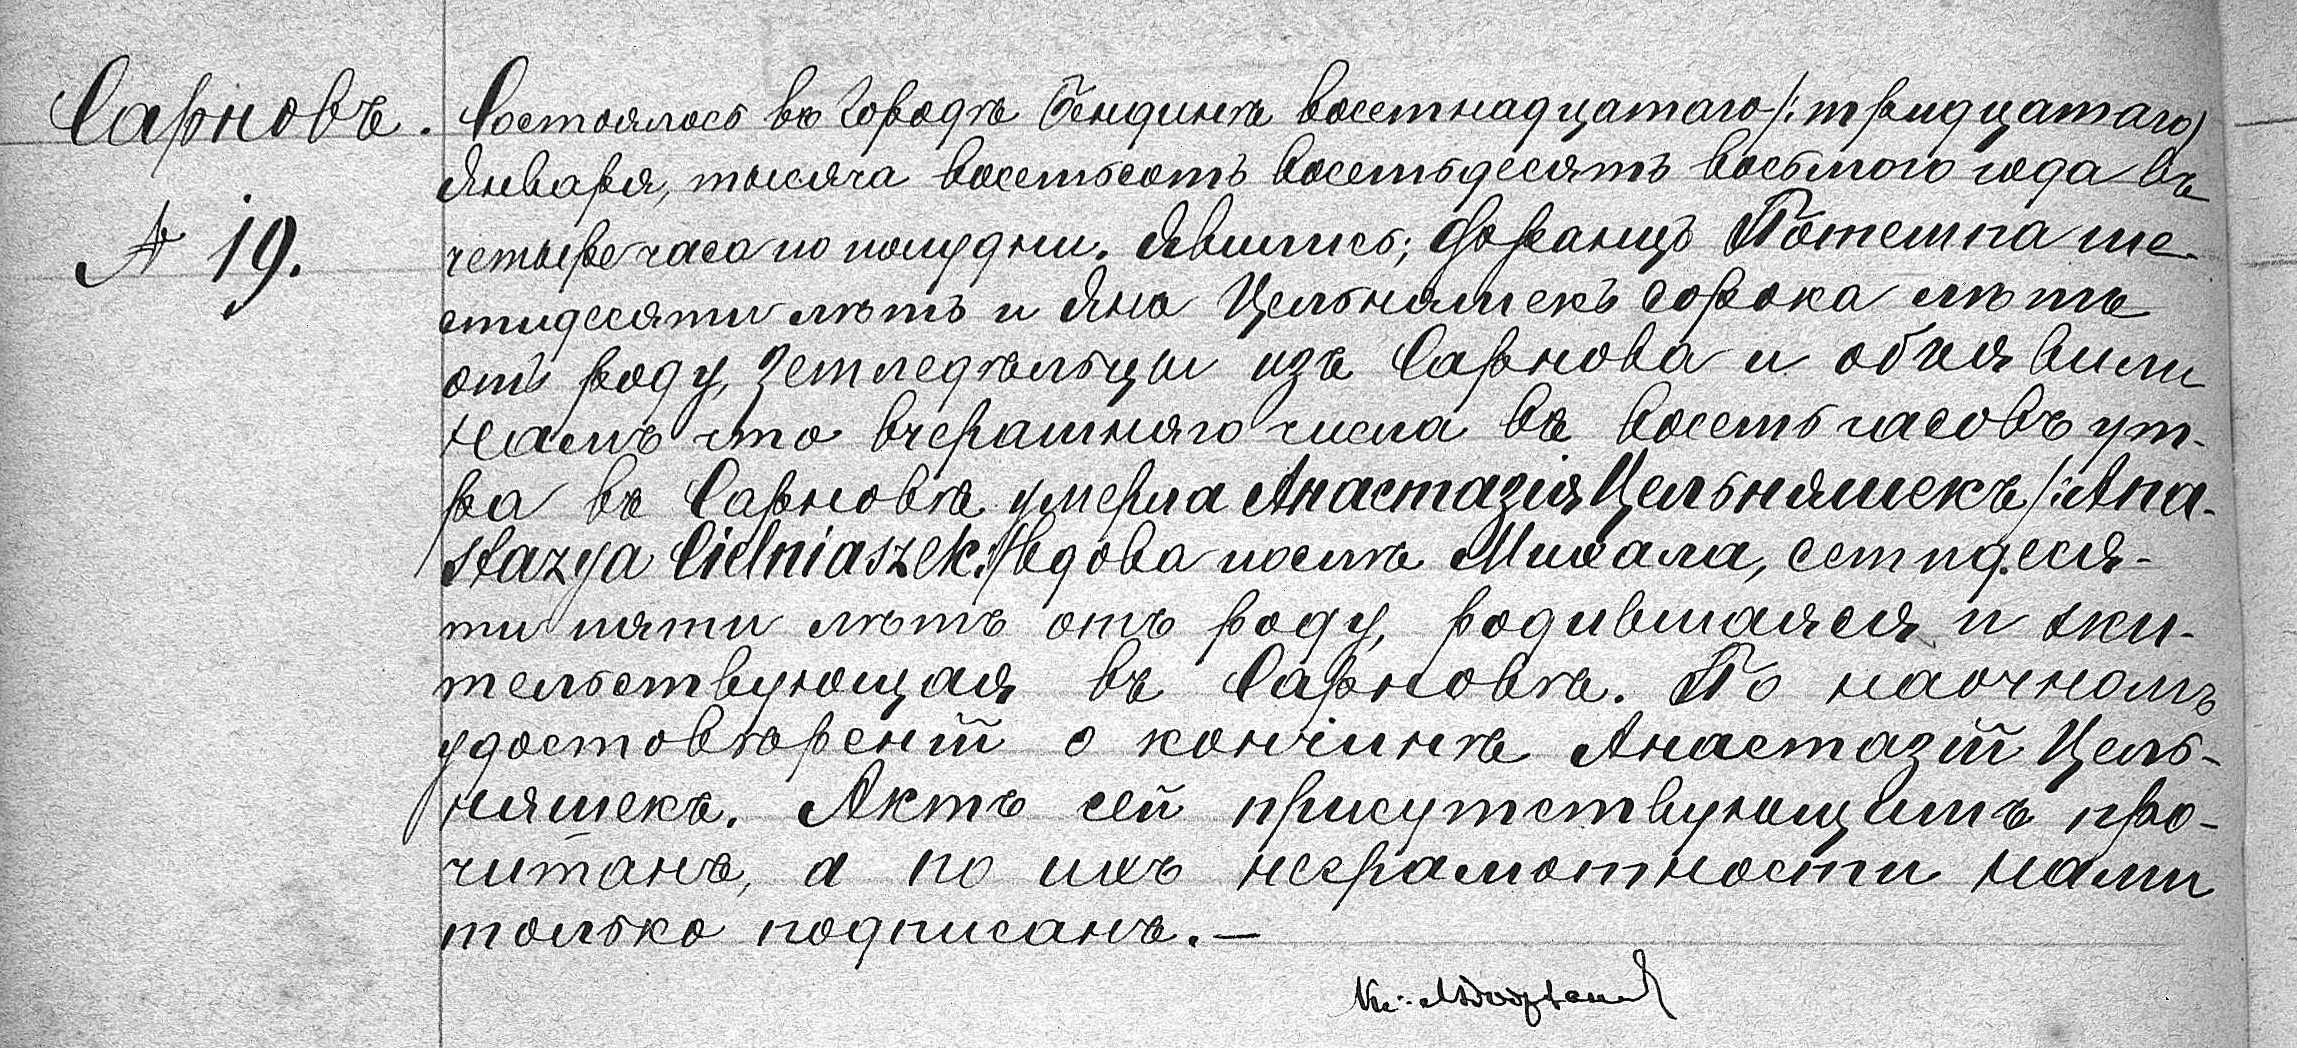 Сарновъ.
№ 19.
Состоялось въ городѣ Бендинѣ восемнадцатаго /: тридцатаго)
Января, тысяча восемьсотъ восемьдесятъ восьмого года въ
четыре часа по полудни. Явились; Францъ Потемпа ше-
стидесяти лѣтъ и Янъ Цельняшекъ сорока лѣтъ
отъ роду, земледѣльцы изъ Сарнова и объявили
намъ что вчерашняго числа въ восемь часовъ ут-
ра въ Сарновѣ умерла Анастазія Цельняшекъ /: Ana-
stazya Cielniaszek :/ вдова послѣ Михала, семидеся-
ти пяти лѣтъ отъ роду, родившаяся и жи-
тельствующая въ Сарновѣ. По наочномъ
удостовѣреніи о кончинѣ Анастазіи Цель-
няшекъ. Актъ сей присутствующимъ про-
читанъ, а по ихъ неграмотности нами
только подписанъ.—